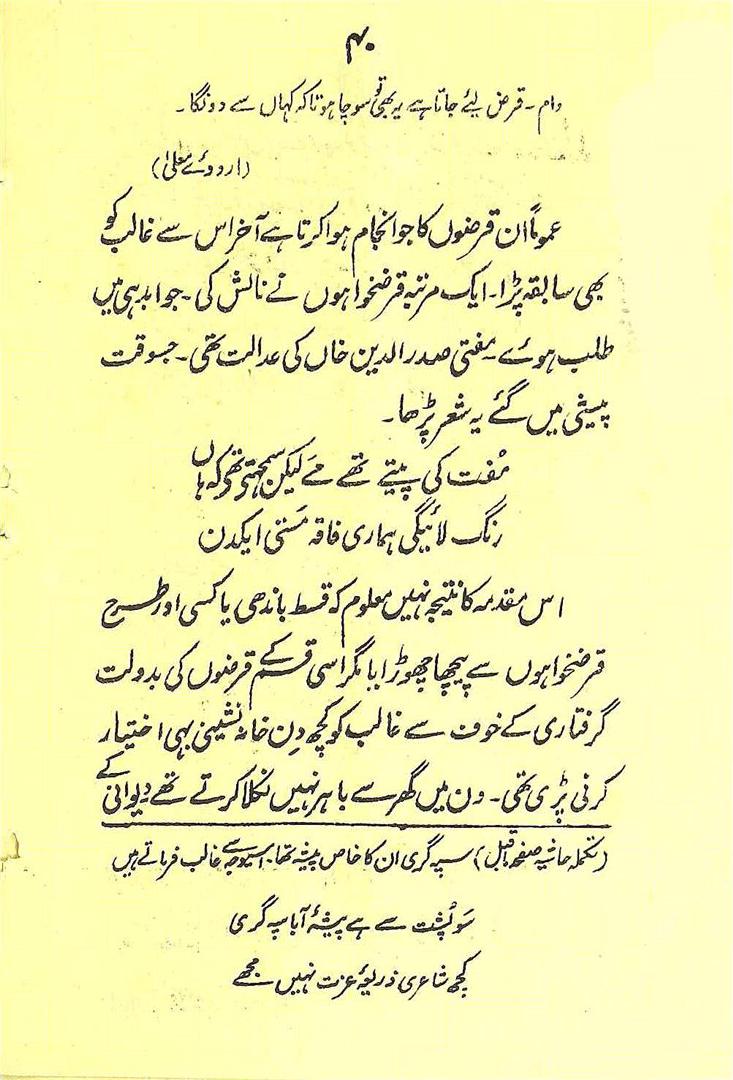 ۴۰
دام ۔ قرض لیئے جاتا ہے یہ بھی تو سوچا ہوتا کہ کہاں سے دونگا ۔
(اردوئے معلیٰ)
عموماً ان قرضوں کا جو انجام ہوا کرتا ہے آخر اس سے غالب کو
بھی سابقہ پڑا ۔ ایک مرتبہ قرضخواہوں نے نالش کی ۔ جوابدہی میں
طلب ہوئے ۔ مفتی صدر الدین خاں کی عدالت تھی ۔ جسوقت
پیشی میں گئے یہ شعر پڑھا ۔
مُفت کی پیتے تھے مے لیکن سمجہتے تھو کہ ہاں
رنگ لائیگی ہماری فاقہ مستی ایکدن
اس مقدمہ کا نتیجہ نہیں معلوم کہ قسط باندھی یا کسی اور طرح
قرضخواہوں سے پیچھا چھوڑایا مگر اسی قسم کے قرضوں کی بدولت
گرفتاری کے خوف سے غالب کو کچھ دن خانہ نشینی بہی اختیار
کرنی پڑی تھی ۔ دن میں گھر سے باہر نہیں نکلا کرتے تھے دیوانی کے
(تکملہ حاشیہ صفحہ ماقبل) سپہ گری ان کا خاص پیشہ تھا ۔ اسیوجہ سے غالب فرماتے ہیں
سو پُشت سے ہے پیشۂ آبا سپہ گری
کچھ شاعری ذریعۂ عزت نہیں مجھے